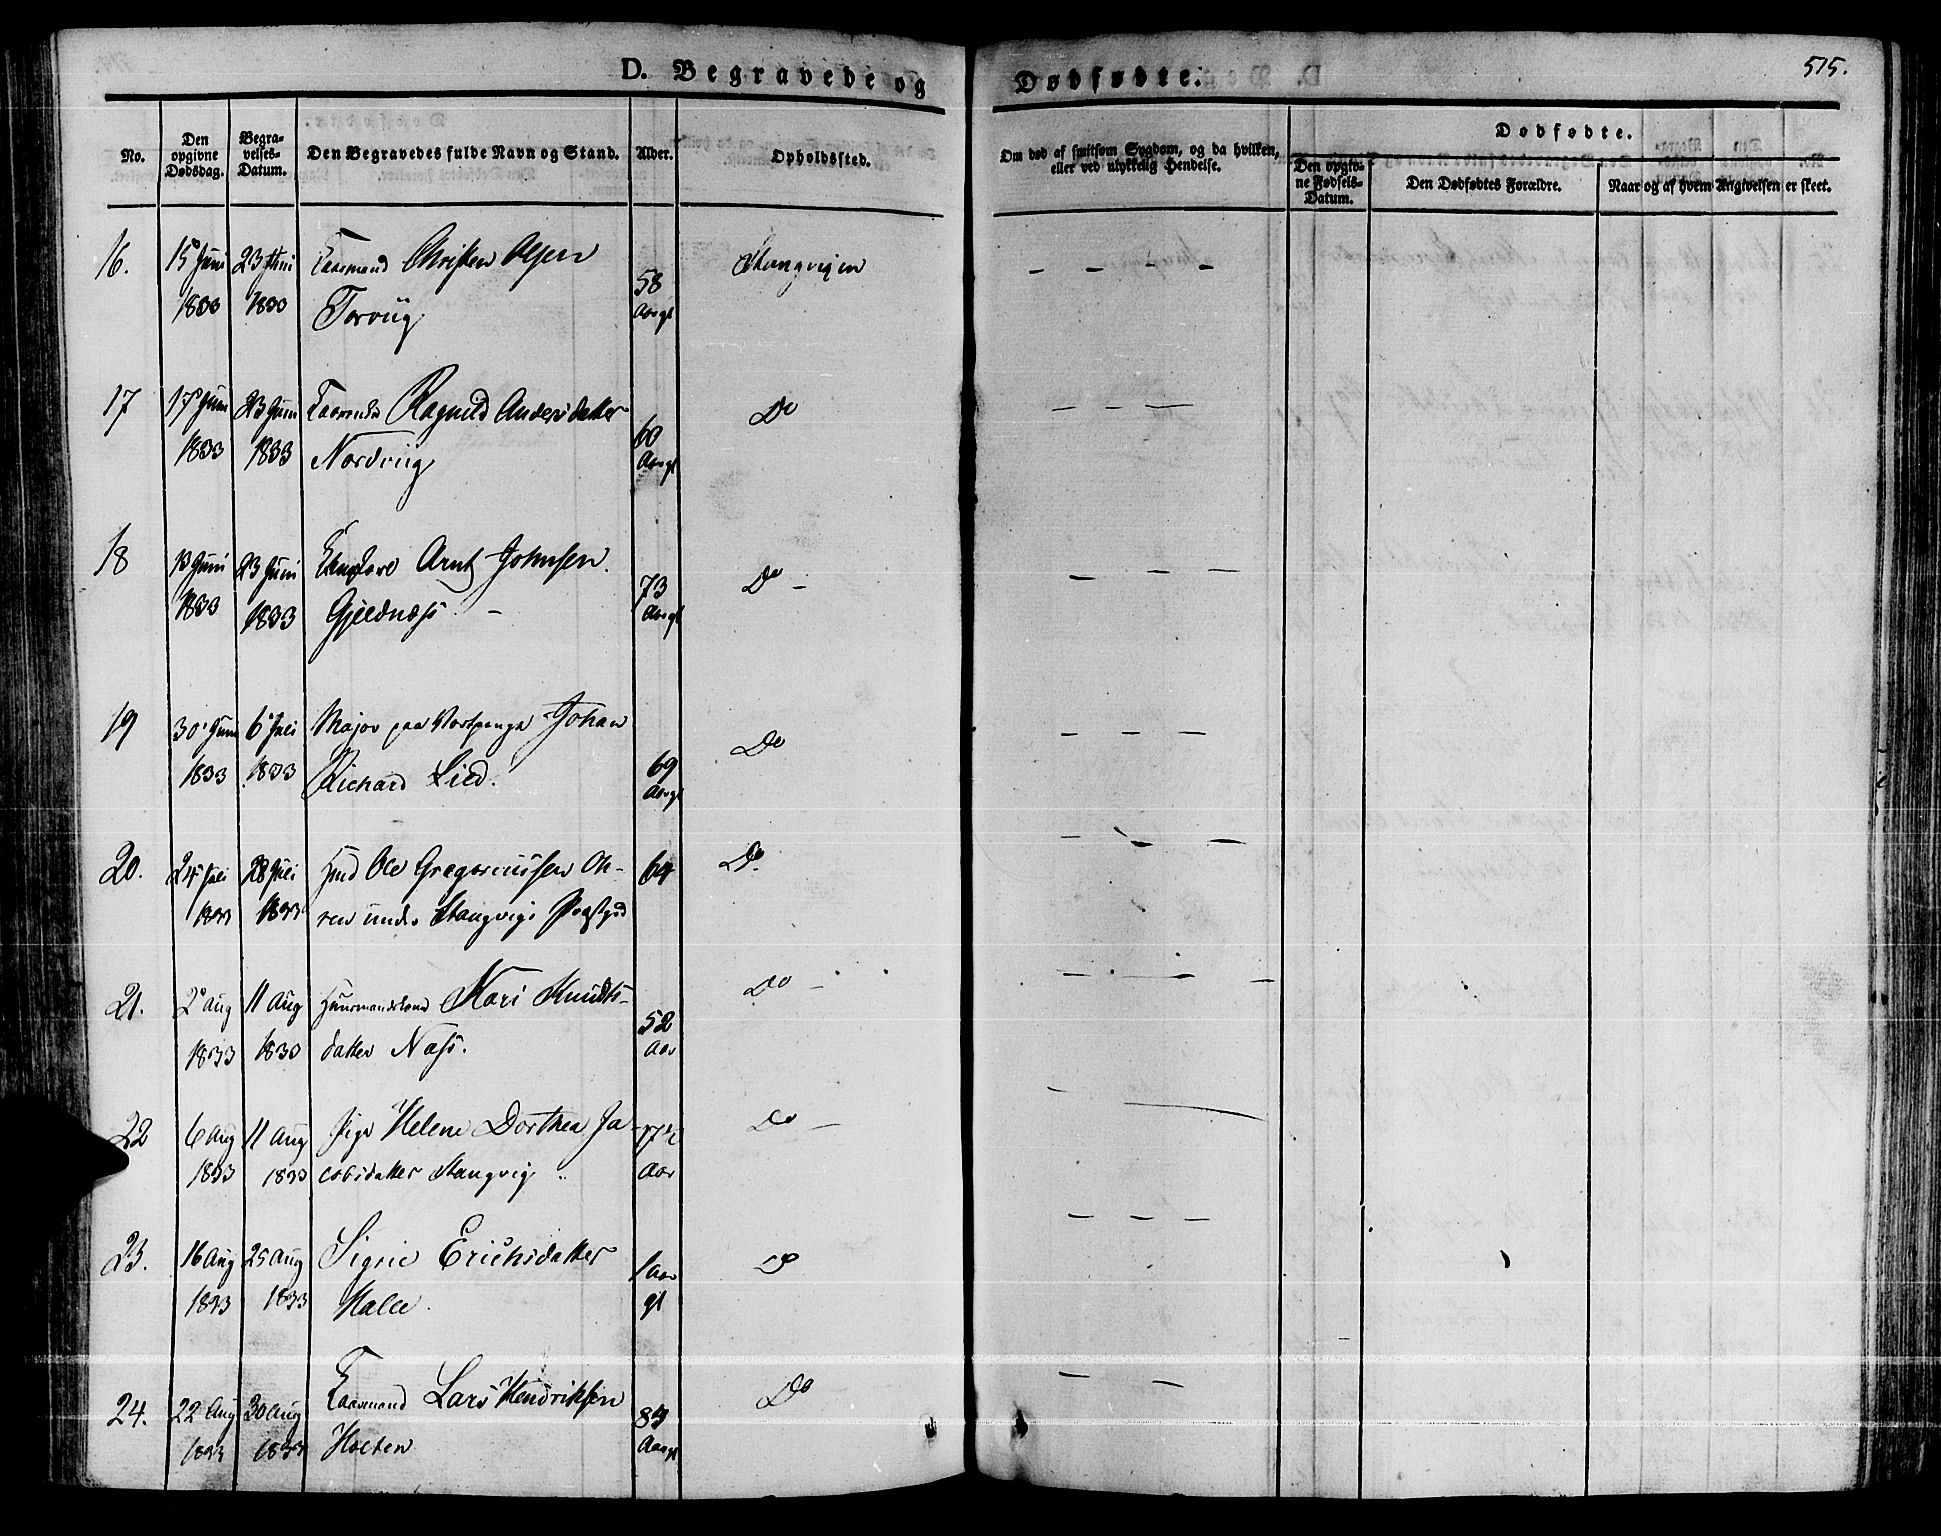 515.
D. Begravede og Dødfødte.
No.
Den opgivne Dødsdag.
Begravelses-Datum.
Den Begravedes fulde Navn og Stand.
Alder.
Opholdssted.
Om død af smitsom Sygdom, og da hvilken,
eller ved ulykkelig Hendelse.
Dødfødte.
Den opgivne Fødsels-Datum.
Den Dødfødtes Forældre.
Naar og af hvem Angivelsen er skeet.
16. 15 Juni 23 Juni Christen Olsen Stangvigen
1833 1833 Torviig 58
17 17 Juni 23 Juni Ragnild Andersdatter Do
1833 1833 Nordviig 60
18 13 Juni 23 Juni Arnt Johnsen. Do -
1833 1833 Gjeldnæss - 73
19 30 Juni 6 Juli Major paa Johan Do
1833 1833 Richard Lied. 69
20. 24 Juli 28 Juli Ole Gregoriussen 64 Do.
1833 1833 ren under Stangvigs
21. 2 Aug 11 Aug Huusmandskone Kari Knudts- Do -
1833 1833 datter Næss. 52 Aar
22 6 Aug 11 Aug Pige Helene Dorthea Ja- 17½ Do -
1833 1833 cobsdatter Stangvig Aar
23. 16 Aug 25 Aug Sigrie Erichsdatter 1 Aar Do
1833 1833 Halle. gl
24. 22 Aug 30 Aug Lars Hendriksen Do
1833 1833 Holten